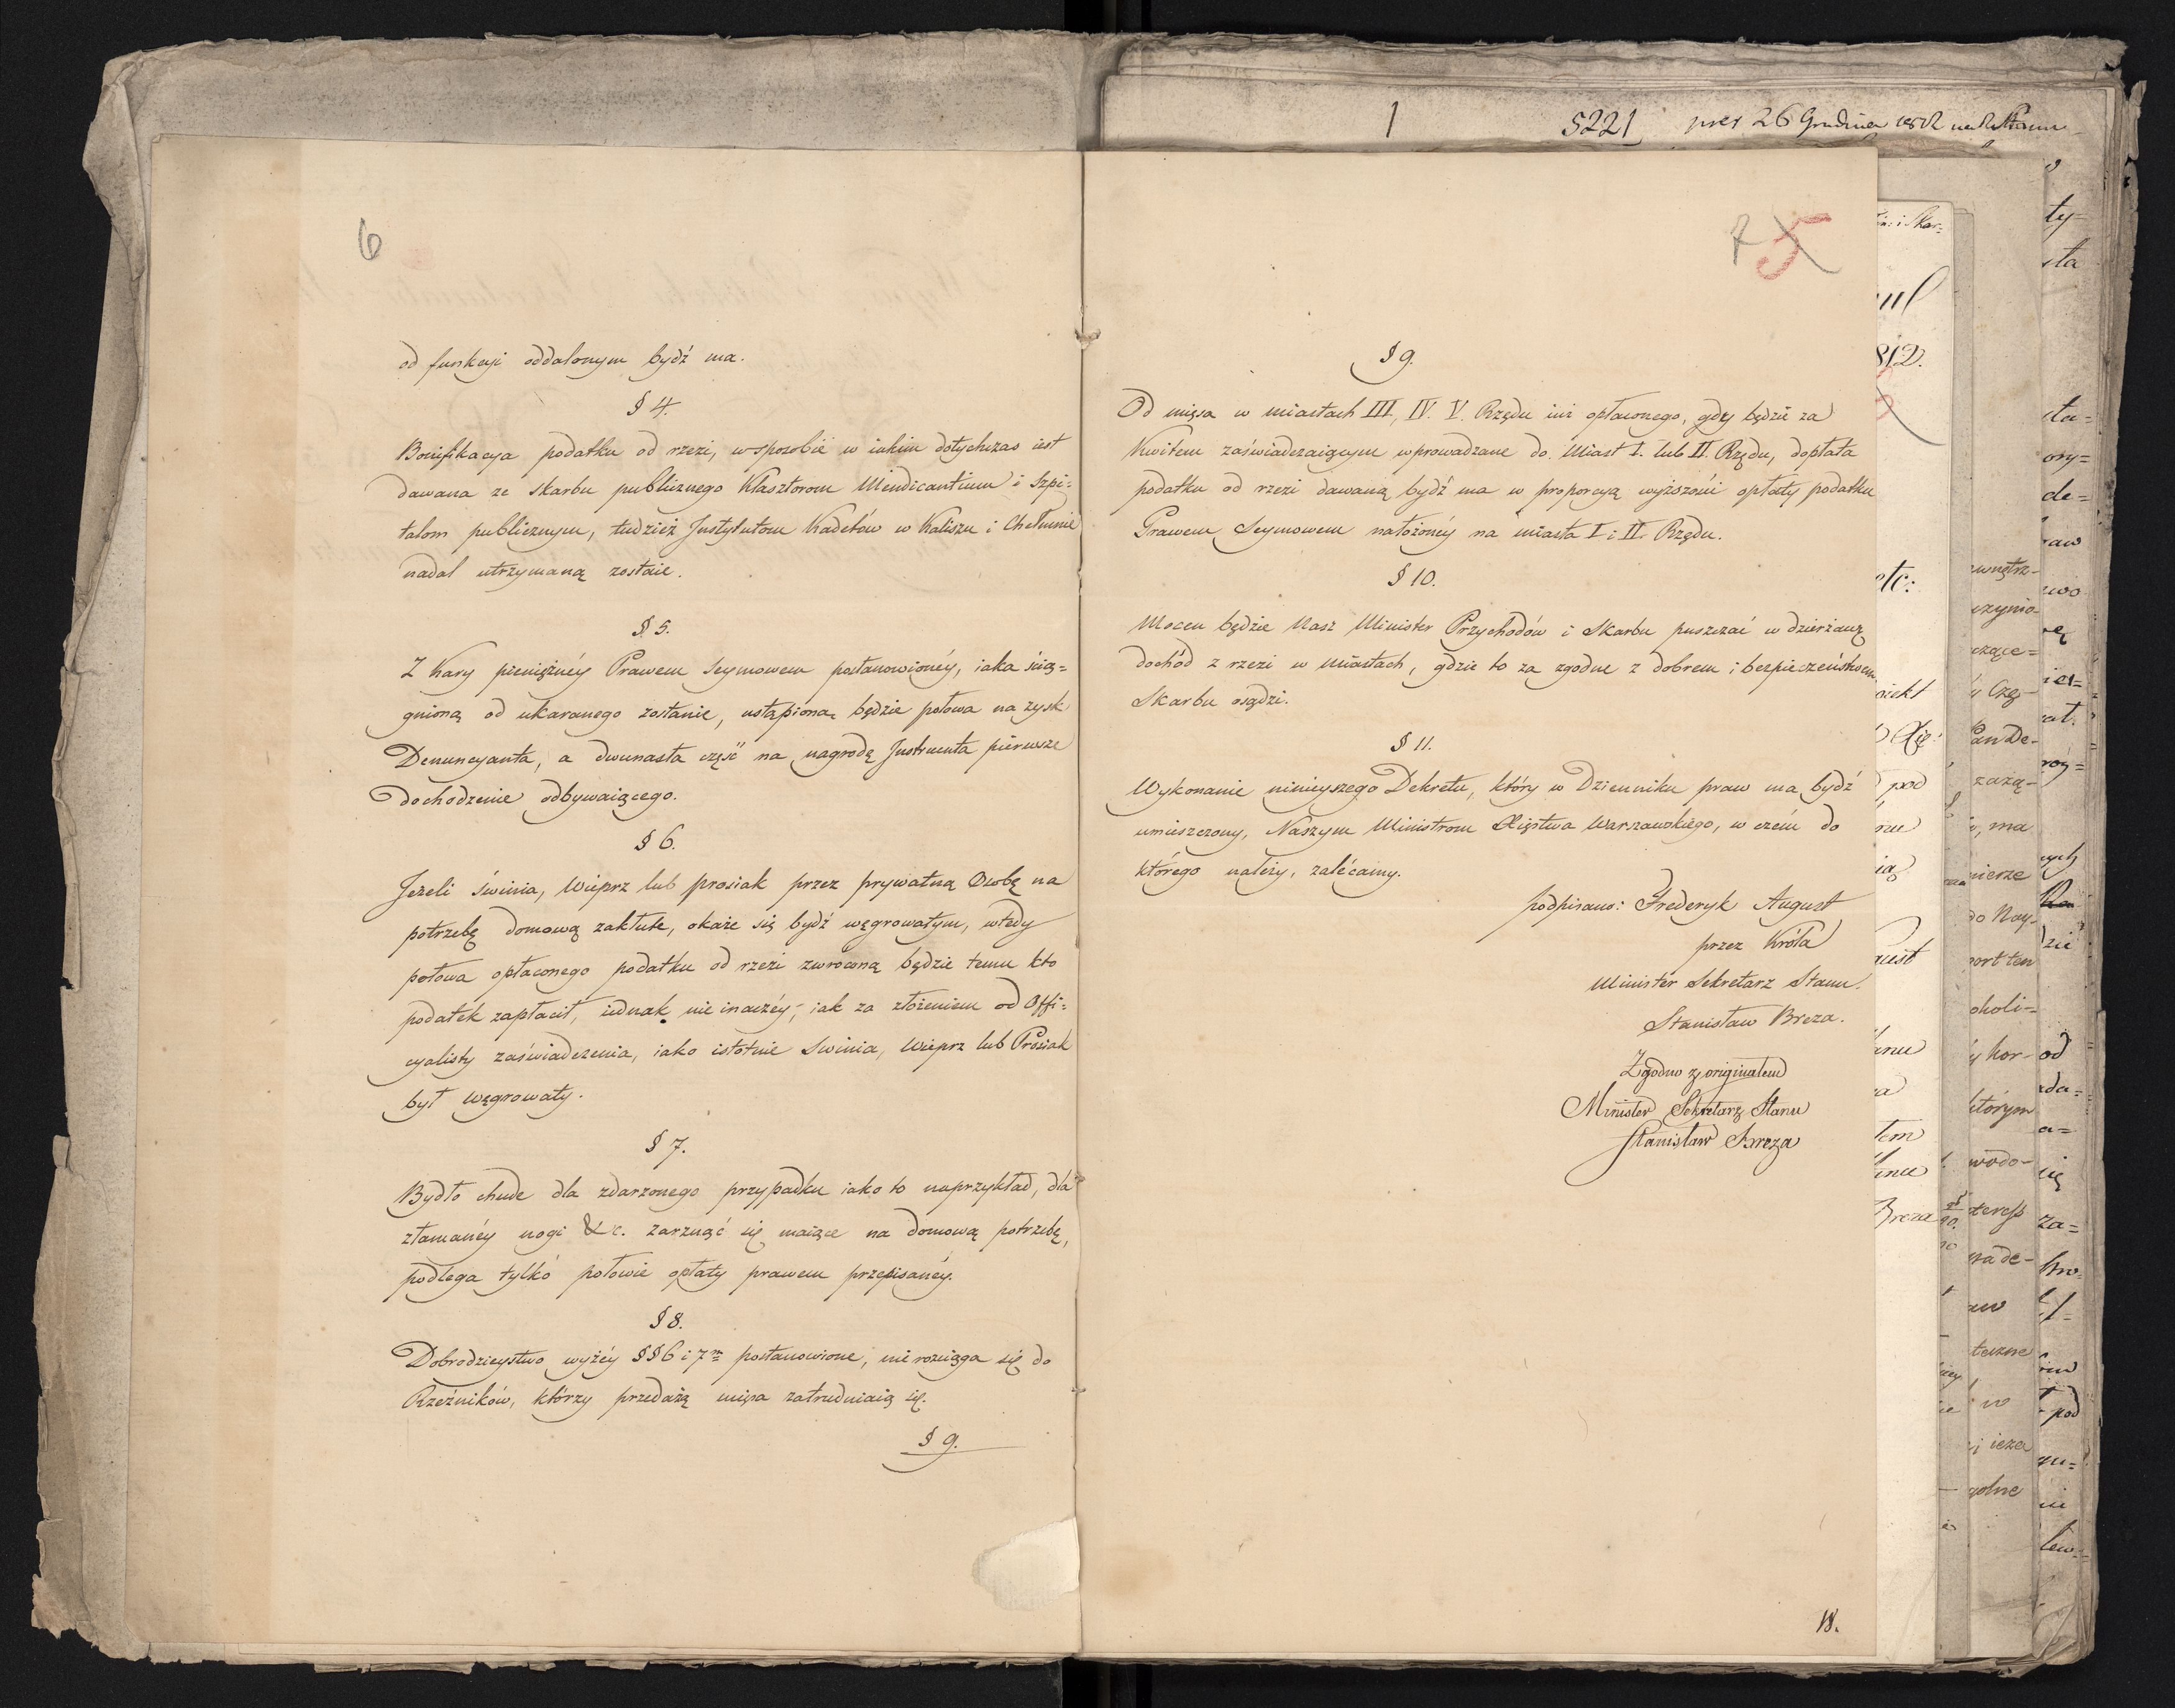 6
od funkcyi oddalonym bydź ma.
§ 4.
Bonifikacya podatku od rzezi, w sposobie w iakim dotychczas iest
dawana ze skarbu publicznego Klasztorom Mendicantium i Szpi=
talom publicznym, tudzież Instytutom Kadetów w Kaliszu i Chełmnie
nadal utrzymaną zostaie.
§ 5.
Z Kary pieniężnéy Prawem Seymowem postanowionéy, iaka ścią=
gnioną od ukaranego zostanie, ustąpioną będzie połowa na zysk
Denuncyanta, a dwunasta część na nagrodę Instruenta pierwsze
dochodzenie odbywaiącego.
§ 6.
Jeżeli świnia, Wieprz lub prosiak przez prywatną Osobę na
potrzebę domową zakłute, okaże się bydź węgrowatym, wtedy
połowa opłaconego podatku od rzezi zwroconą będzie temu kto
podatek zapłacił, iednak nie inaczéy, iak za złożeniem od Offi=
cyalisty zaświadczenia, iako istotnie Swinia, Wieprz lub Prosiak
był węgrowaty.
§ 7.
Bydło chude dla zdarzonego przypadku iako to naprzykład, dla
złamanéy nogi &c. zarznąć się maiące na domową potrzebę,
podlega tylko połowie opłaty prawem przepisanéy.
§ 8.
Dobrodzieystwo wyżéy §§ 6 i 7m postanowione, nie rozciąga się do
Rzeźników, którzy przedażą mięsa zatrudniaią się.
§ 9.
1 5221 26 Grudnia
7 5
§ 9.
Od mięsa w miastach III, IV. V. Rzędu iuż opłaconego, gdy będzie za
Kwitem zaświadczaiącym wprowadzane do Miast I. lub II. Rzędu, dopłata
podatku od rzezi dawaną bydź ma w proporcyą wyższości opłaty podatku
Prawem Seymowem nałożonéy na miasta I i II. Rzędu.
§ 10.
Mocen będzie Nasz Minister Przychodów i Skarbu puszczać w dzierżawę
dochód z rzezi w miastach, gdzie to za zgodne z dobrem i bezpieczeństwem
Skarbu osądzi.
§ 11.
Wykonanie ninieyszego Dekretu, który w Dzienniku praw ma bydź
umieszczony, Naszym Ministrom Xięstwa Warszawskiego, w czém do
którego należy, zalécamy.
podpisano: Frederyk August
przez Króla
Minister Sekretarz Stanu.
Stanisław Breza.
Zgodno z originałem
Minister Sekretarz Stanu
Stanisław Breza
18.